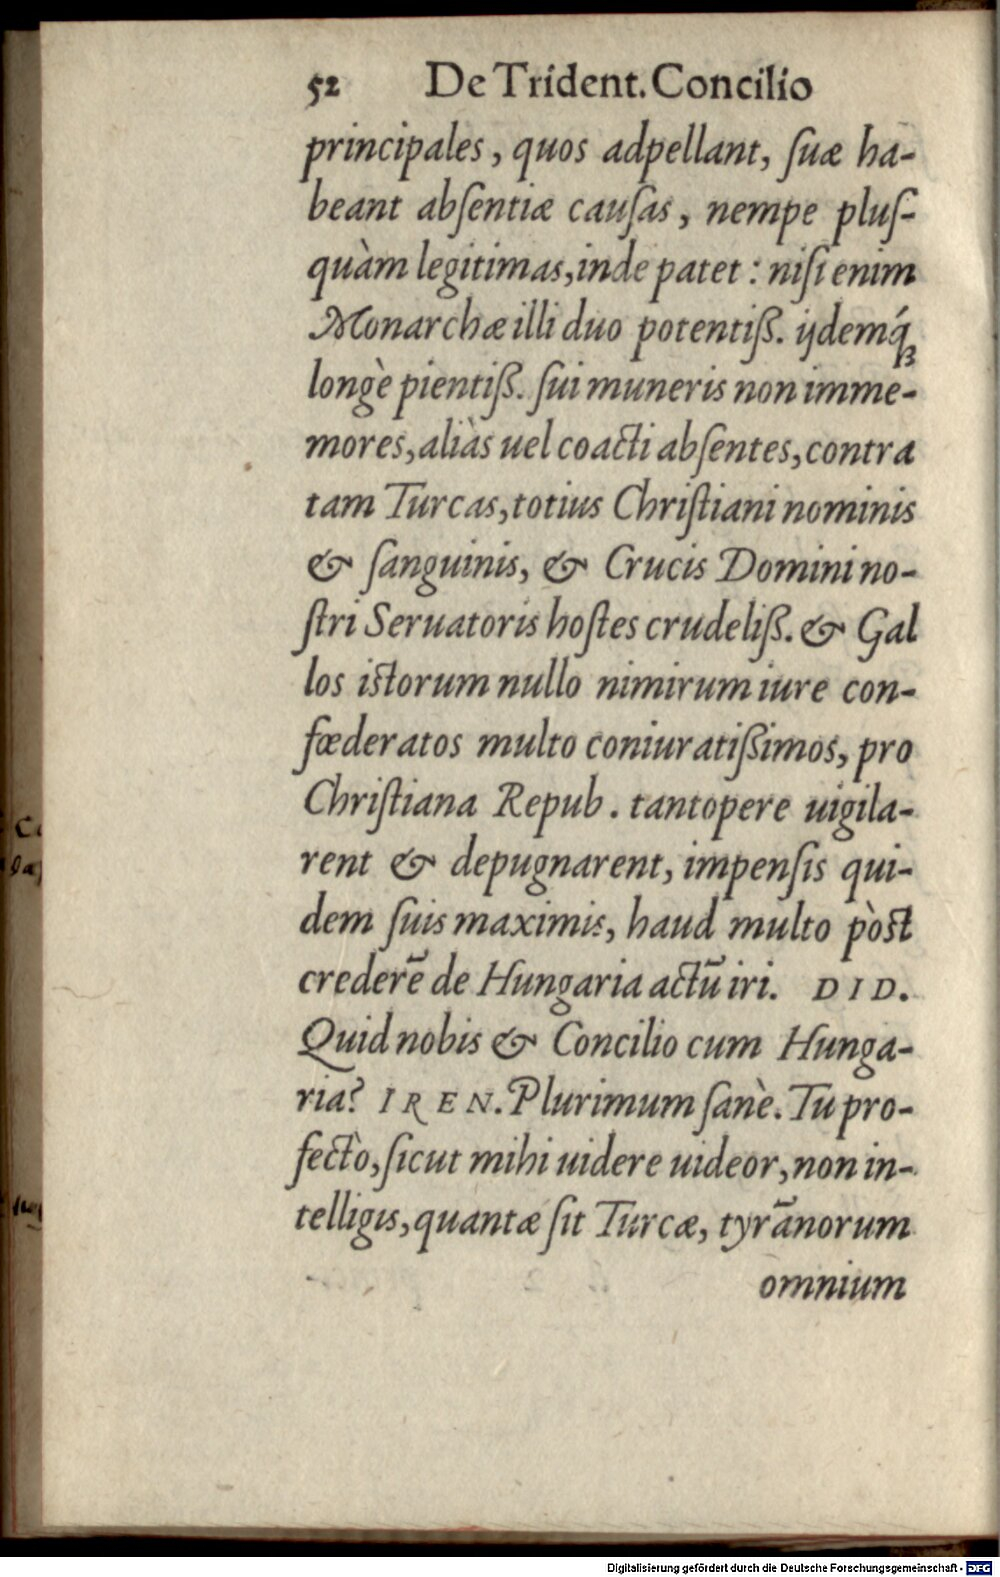 52 De Trident. Concilio
principales, quos adpellant, ſuæ ha-
beant abſentiæ cauſas, nempe pluſ-
quàm legitimas, inde patet: niſi enim
Monarchæ illi duo potentiß. ijdemq́ꝫ
longè pientiß. ſui muneris non imme-
mores, aliàs uel coacti abſentes, contra
tam Turcas, totius Chriſtiani nominis
& ſanguinis, & Crucis Domini no-
ſtri Seruatoris hoſtes crudeliß. & Gal
los istorum nullo nimirum iure con-
fœderatos multo coniuratißimos, pro
Chriſtiana Repub. tantopere uigila-
rent & depugnarent, impenſis qui-
dem ſuis maximis, haud multo pòst
crederẽ de Hungaria actũ iri. DID.
Quid nobis & Concilio cum Hunga-
ria? IREN. Plurimum ſanè. Tu pro-
fectò, ſicut mihi uidere uideor, non in-
telligis, quantæ ſit Turcæ, tyrãnorum
omnium
Digitalisierung gefördert durch die Deutsche Forschungsgemeinschaft - DFG